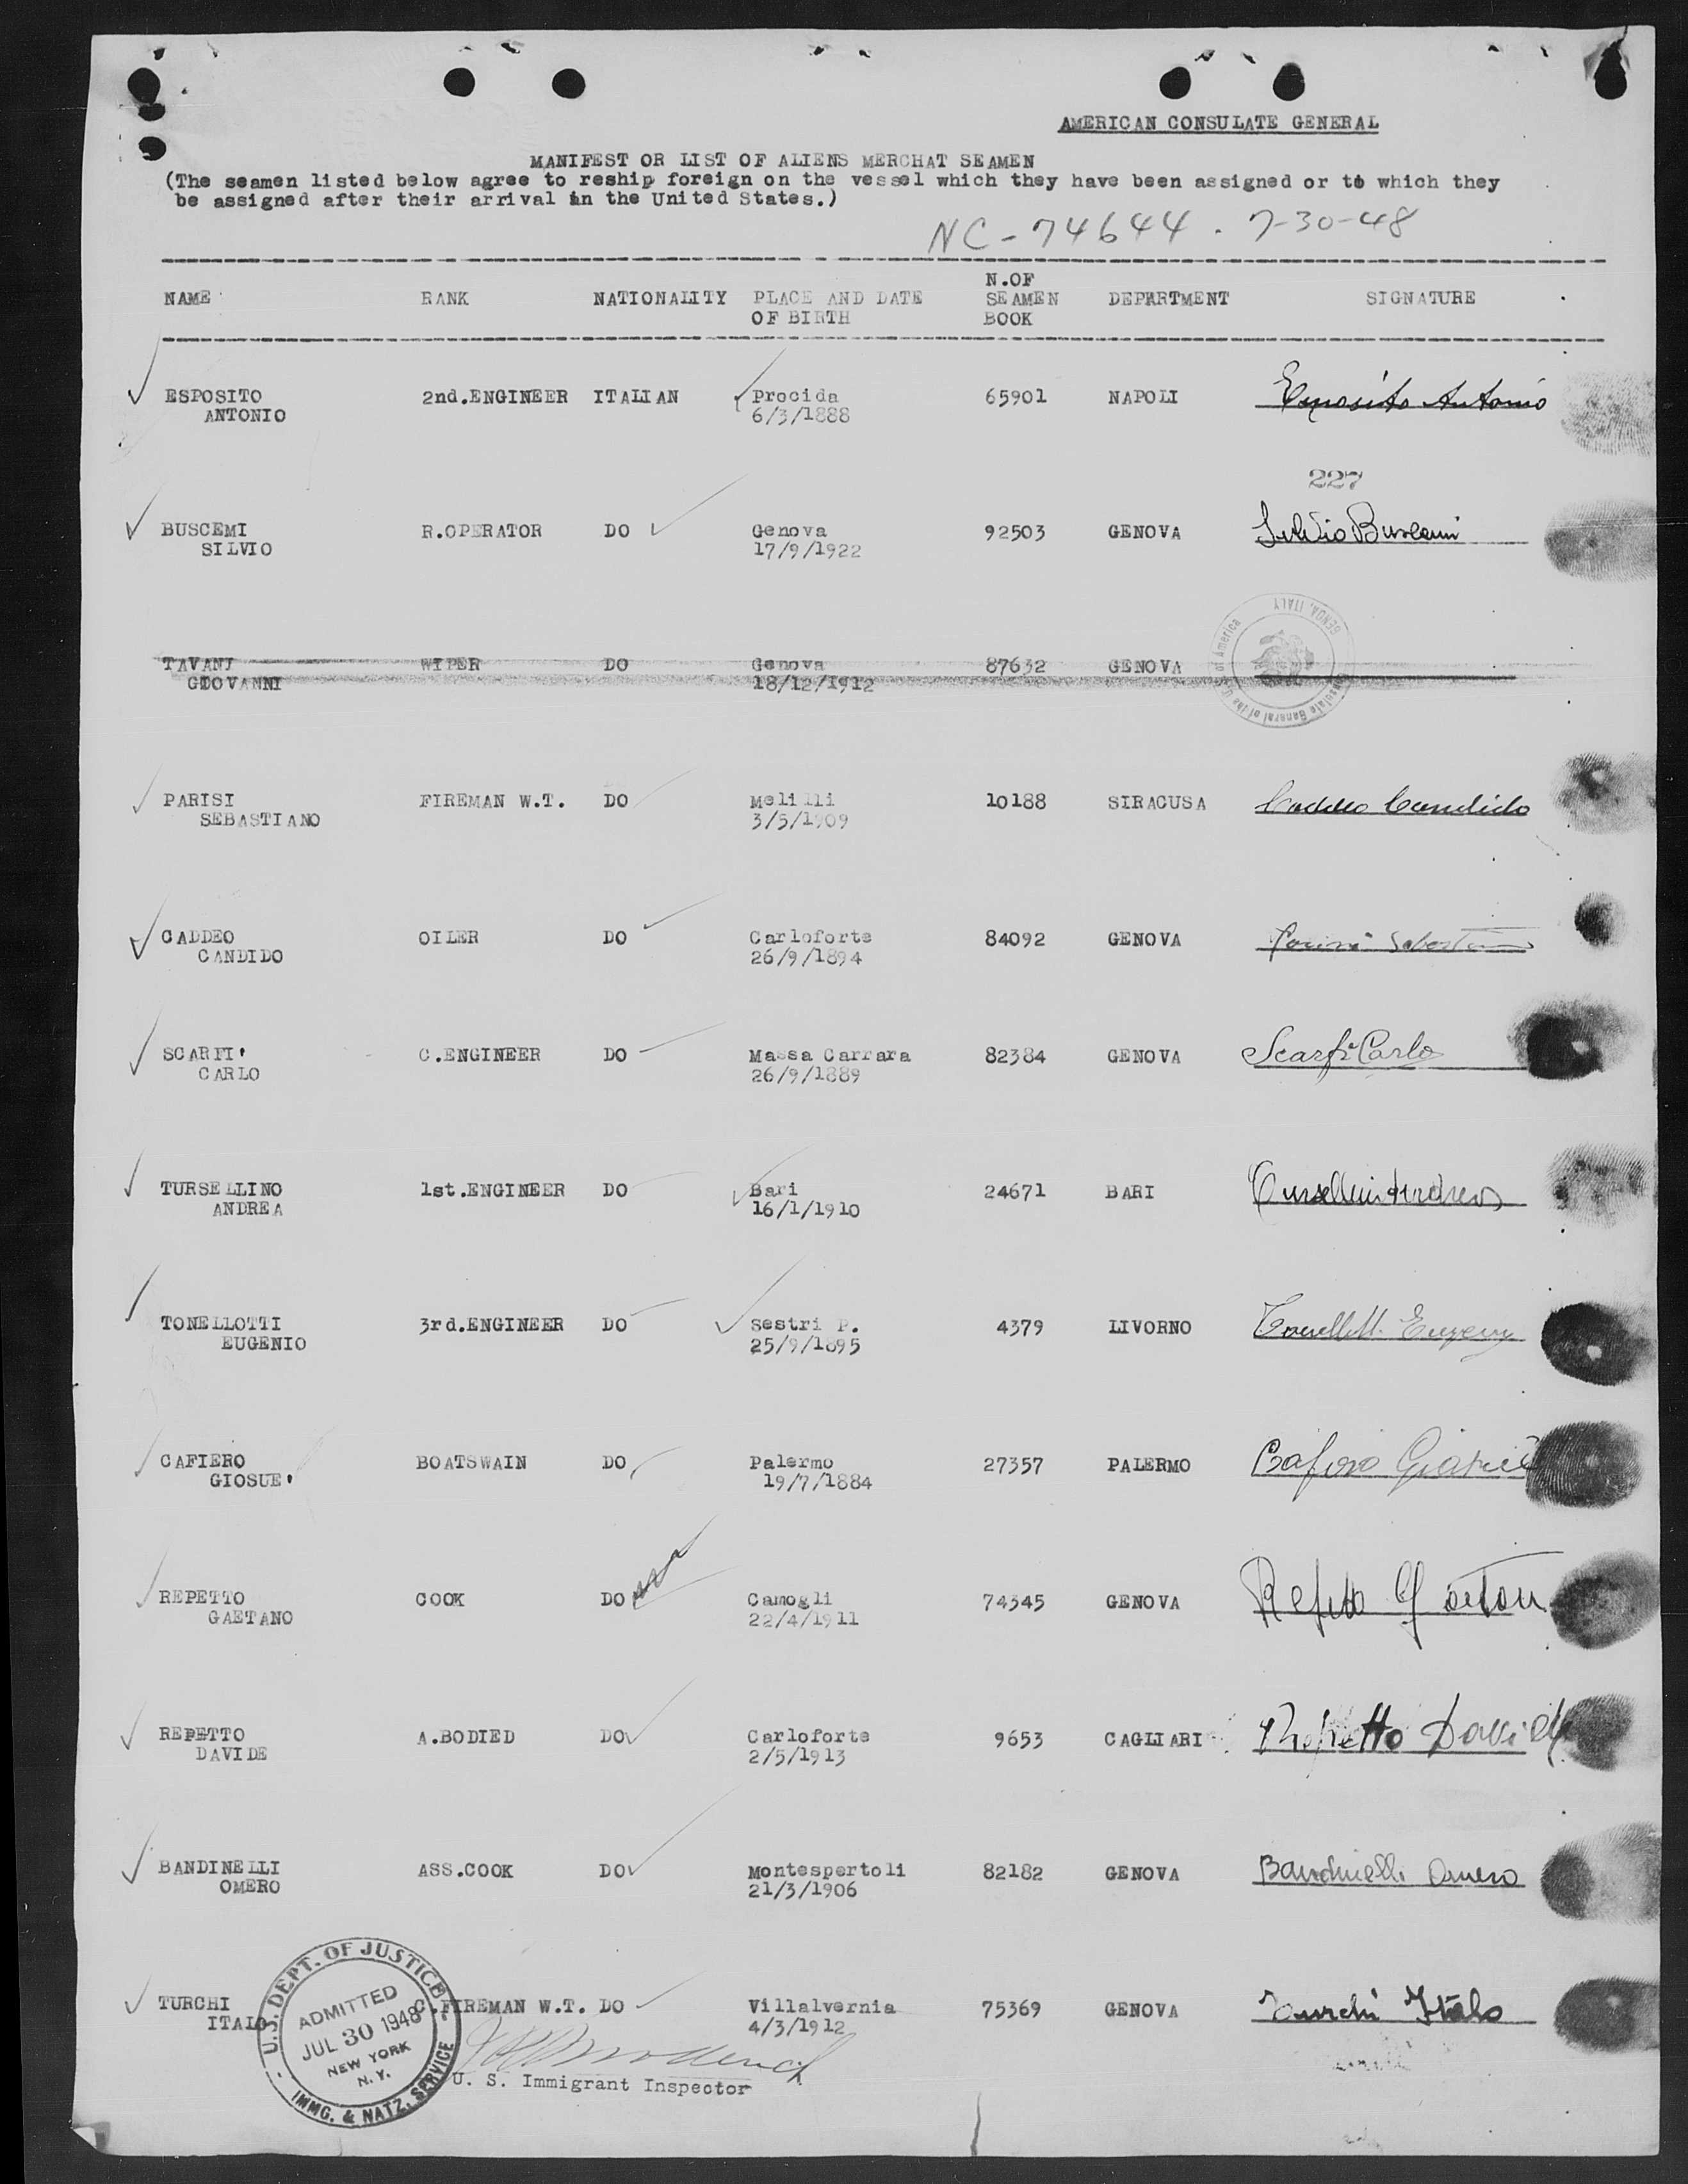 AMERICAN CONSULATE GENERAL
MANIFEST OR LIST OF ALIENS MERCHAT SEAMEN
(The seamen listed below agree to reship foreign on the vessel which they have been assigned or to which they
be assigned after their arrival in the United States.)
NC-74644. 7-30-48
N.OF
NAME RANK NATIONALITY PLACE AND DATE SEAMEN DEPARTMENT SIGNATURE
OF BIRTH BOOK
ESPOSITO 2nd.ENGINEER ITALIAN Procida 65901 NAPOLI Esposito Antonio
ANTONIO 6/3/1888
227
BUSCEMI R.OPERATOR DO Genova 92503 GENOVA Silvio Buscemi
SILVIO 17/9/1922
GENOA, ITALY
Consulate General of the U.S. of America
TAVANI WIPER DO Genova 87632 GENOVA
GIOVANNI 18/12/1912
PARISI FIREMAN W.T. DO Melilli 10188 SIRACUSA Caddeo Candido
SEBASTIANO 3/5/1909
CADDEO OILER DO Carloforte 84092 GENOVA Parisi Sebastiano
CANDIDO 26/9/1894
SCARFI' C.ENGINEER DO Massa Carrara 82384 GENOVA Scarfi Carlo
CARLO 26/9/1889
TURSELLINO 1st.ENGINEER DO Bari 24671 BARI Tursellino Andrea
ANDREA 16/1/1910
TONELLOTTI 3rd.ENGINEER DO Sestri P. 4379 LIVORNO Tonellotti Eugenio
EUGENIO 25/9/1895
CAFIERO BOATSWAIN DO Palermo 27357 PALERMO Cafiero Giosuè
GIOSUE' 19/7/1884
REPETTO COOK DO Camogli 74345 GENOVA
GAETANO 22/4/1911
REPETTO A.BODIED DO Carloforte 9653 CAGLIARI Repetto Davide
DAVIDE 2/5/1913
BANDINELLI ASS.COOK DO Montespertoli 82182 GENOVA Bandinelli Omero
OMERO 21/3/1906
TURCHI C.FIREMAN W.T. DO Villalvernia 75369 GENOVA Turchi Italo
ITALO 4/3/1912
U.S. DEPT. OF JUSTICE
ADMITTED
JUL 30 1948
NEW YORK
N.Y.
IMMG. & NATZ. SERVICE
U. S. Immigrant Inspector